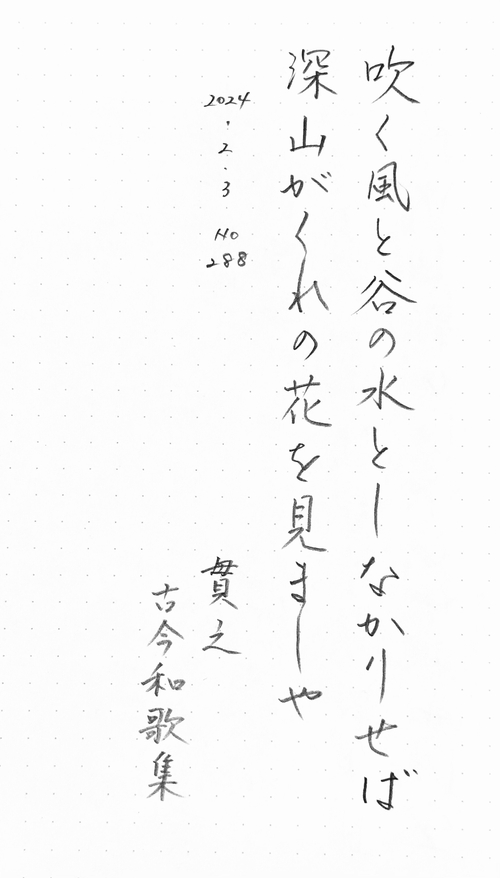 吹く風と谷の水としなかりせば
深山がくれの花を見ましや
2024・2・3 No 288
貫之
古今和歌集